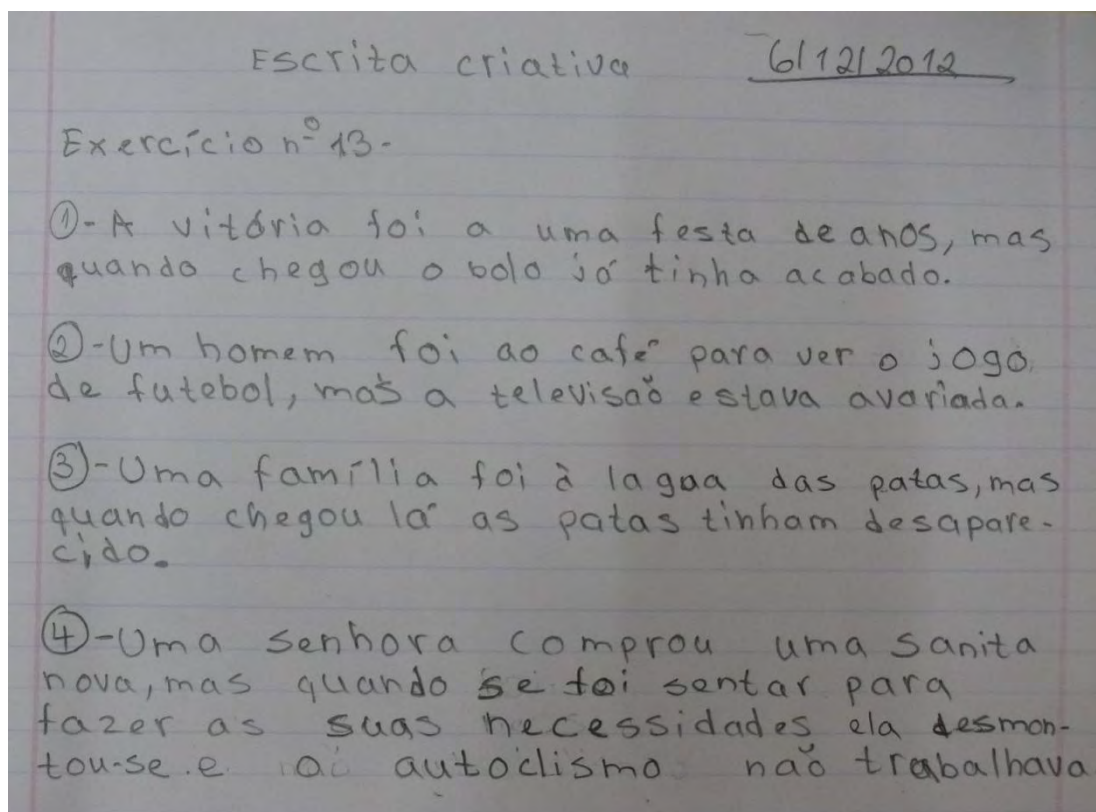 Escrita criativa 6/12/2012
Exercício nº 13-
①-A vitória foi a uma festa de anos, mas
quando chegou o bolo já tinha acabado.
②-Um homem foi ao café para ver o jogo
de futebol, mas a televisão estava avariada.
③-Uma família foi à lagoa das patas, mas
quando chegou lá as patas tinham desapare-
cido.
④-Uma senhora comprou uma sanita
nova, mas quando se foi sentar para
fazer as suas necessidades ela desmon-
tou-se e o autoclismo não trabalhava